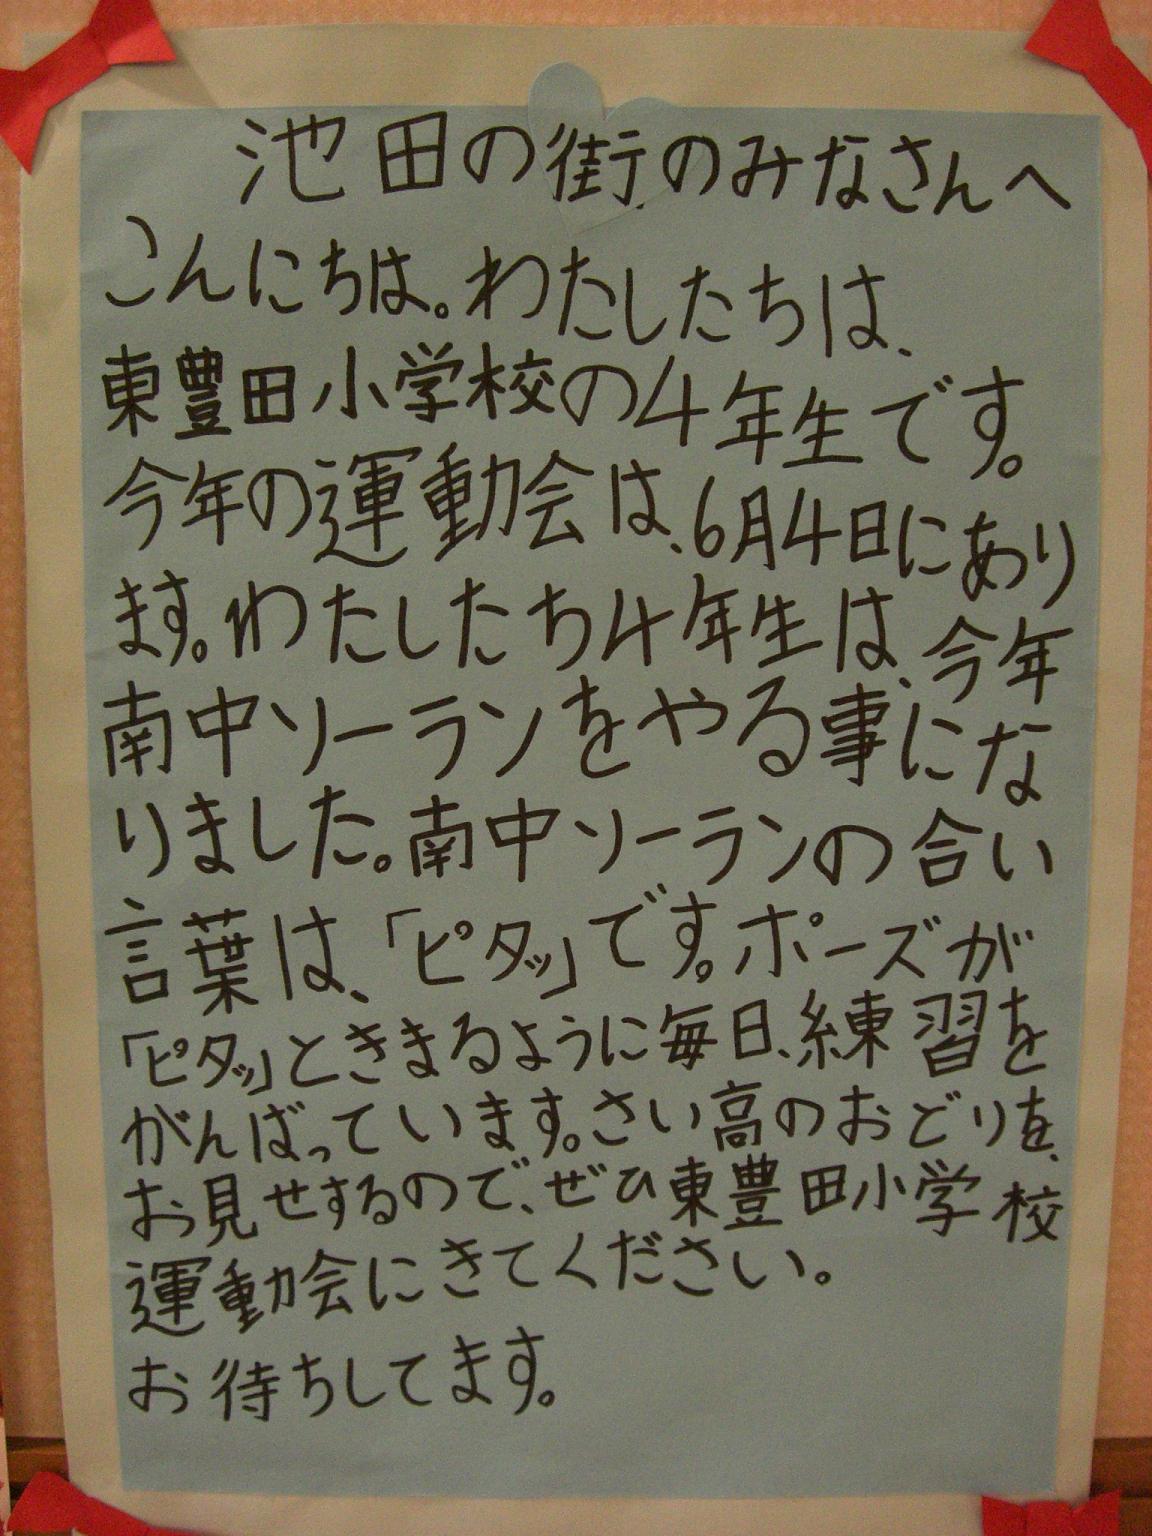 池田の街のみなさんへ
こんにちは。わたしたちは、
東豊田小学校の4年生です。
今年の運動会は、6月4日にあり
ます。わたしたち4年生は、今年
南中ソーランをやる事にな
りました。南中ソーランの合い
言葉は、「ピタッ」です。ポーズが
「ピタッ」ときまるように毎日、練習を
がんばっています。さい高のおどりを、
お見せするので、ぜひ東豊田小学校
運動会にきてください。
お待ちしてます。